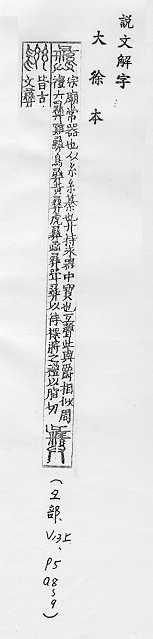 說文解字
大徐本
彝 宗廟常器也从糸糸綦也廾持米器中寶也彑聲此與爵相似周
禮六彝雞彝鳥彝黃彝虎彝蟲彝斝彝以待祼將之禮以脂切
皆古
文彝
(糸部、V.13上、P5 a8~9)